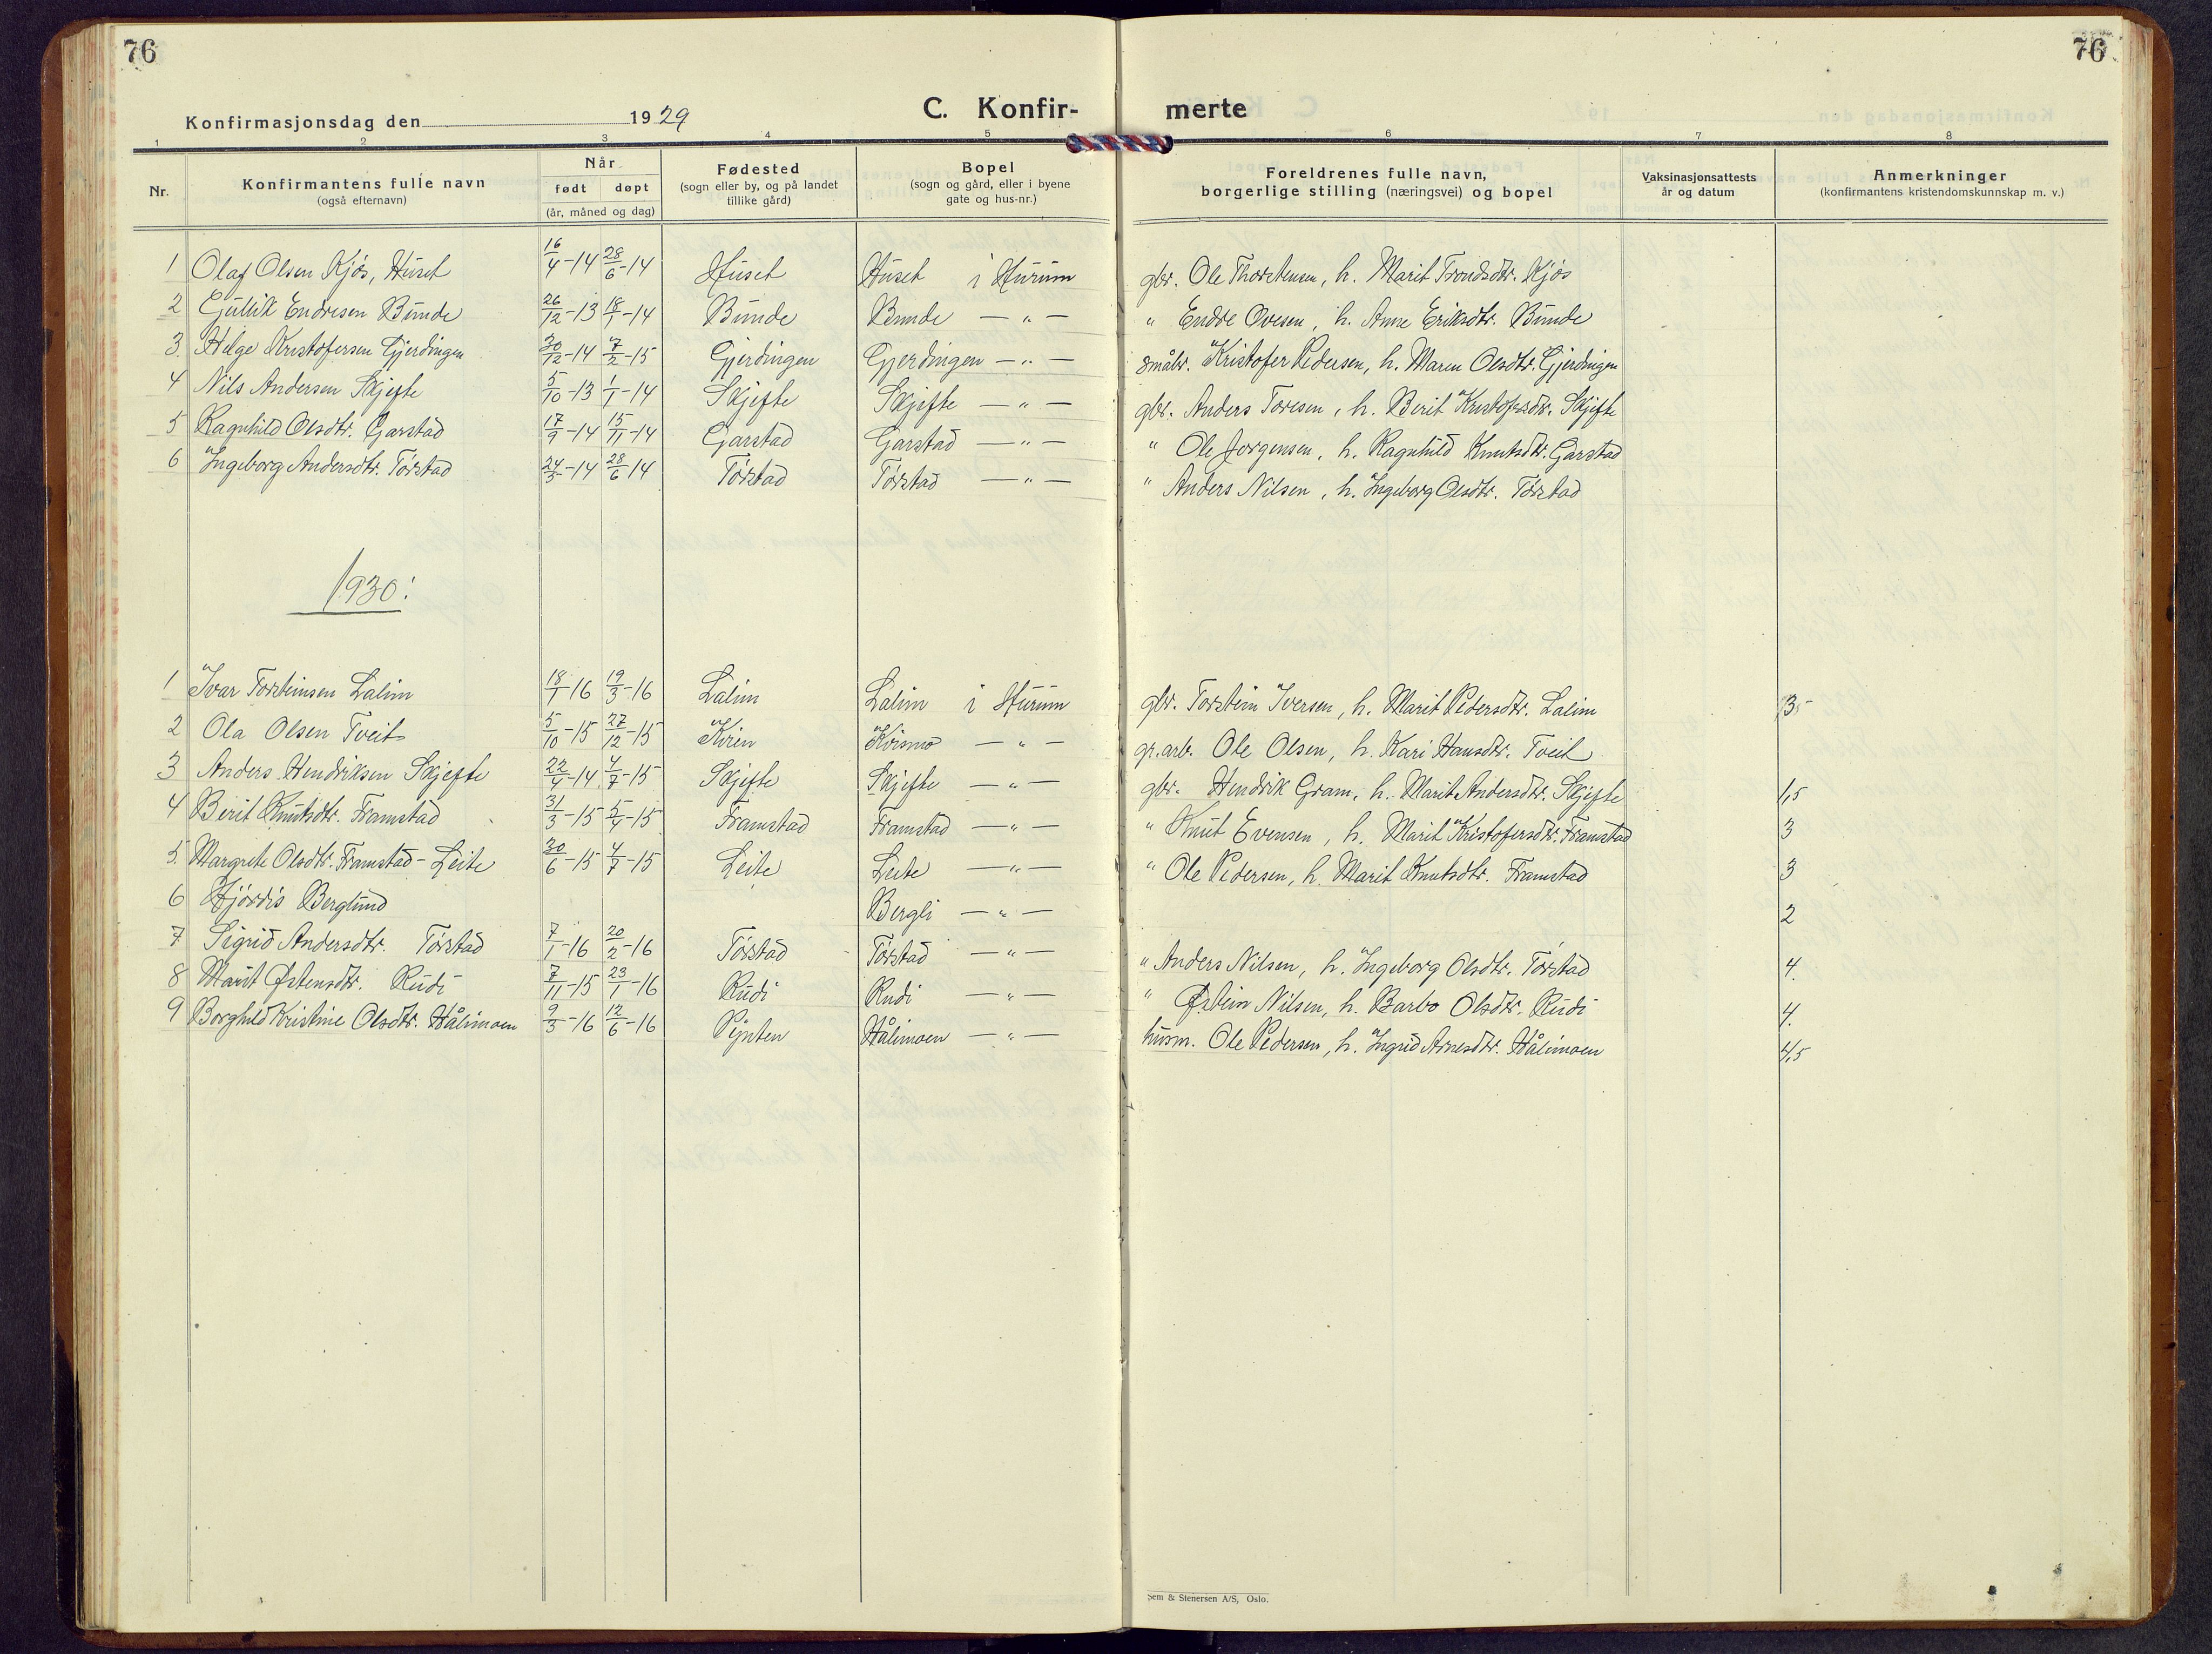 76
76
Konfirmasjonsdag den 1929
C. Konfir-
merte
1 2 3 4 5 6 7 8
Nr.
Konfirmantens fulle navn
(også efternavn)
Når
født døpt
(år, måned og dag)
Fødested
(sogn eller by, og på landet
tillike gård)
Bopel
(sogn og gård, eller i byene
gate og hus-nr.)
Foreldrenes fulle navn,
borgerlige stilling (næringsvei) og bopel
Vaksinasjonsattests
år og datum
Anmerkninger
(konfirmantens kristendomskunnskap m. v.)
1 Olaf Olsen Kjøs, Huset 16/4-14 28/6-14 Huset Huset i Hurum gbr. Ole Thorstensen, h. Marit Trondsdtr. Kjøs
2 Gullik Endresen Bunde 26/12-13 18/1-14 Bunde Bunde -"- " Endre Ovesen, h. Anne Eriksdtr. Bunde
3. Helge Kristofersen Gjerdingen 30/12-14 7/2-15 Gjerdingen Gjerdingen -"- småbr. Kristofer Pedersen, h. Maren Olsdtr. Gjerdingen
4 Nils Andersen Skjefte 5/10-13 1/1-14 Skjefte Skjefte -"- gbr. Anders Toresen, h. Berit Kristofersdtr. Skjefte
5 Ragnhild Olsdtr. Garstad 17/9-14 15/11-14 Garstad Garstad -"- " Ole Jorgensen, h. Ragnhild Knutsdtr. Garstad
6 Ingeborg Andersdtr. Tørstad 24/5-14 28/6 14 Tørstad Tørstad -"- " Anders Nilsen, h. Ingeborg Olsdtr. Tørstad
1930:
1 Ivar Torsteinsen Lalim 18/1-16 19/3-16 Lalim Lalim i Hurum gbr. Torstein Iversen, h. Marit Pedersdtr. Lalim 3,5
2 Ola Olsen Tveit 5/10-15 27/12-15 Kvien Kvismo -"- gr.arb. Ole Olsen, h. Kari Hansdtr. Tveit
3 Anders Hendriksen Skjefte 22/4-14 4/7-15 Skjefte Skjefte -"- gbr. Hendrik Gram, h. Marit Andersdtr. Skjefte 1,5
4 Berit Knutsdtr. Framstad 31/3-15 5/4-15 Framstad Framstad -"- " Knut Evensen, h. Marit Kristofersdtr. Framstad 3
5. Margrete Olsdtr. Framstad-Leite 30/6-15 4/7-15 Leite Leite -"- " Ole Pedersen, h. Marit Knutsdtr. Framstad 3
6 Hjördis Berglund Bergli -"- 2
7 Sigrid Andersdtr. Tørstad 7/1-16 20/2-16 Tørstad Tørstad -"- " Anders Nilsen, h. Ingeborg Olsdtr. Tørstad 4.
8 Marit Østensdtr. Rudi 7/11-15 23/1-16 Rudi Rudi -"- " Østein Nilsen, h. Barbo Olsdtr. Rudi 4.
9 Borghild Kristine Olsdtr. Hålimoen 9/3-16 12/6-16 Pynten Hålimoen -"- husm. Ole Pedersen, h. Ingrid Arnesdtr. Hålimoen 4,5
Sem & Stenersen A/S, Oslo.